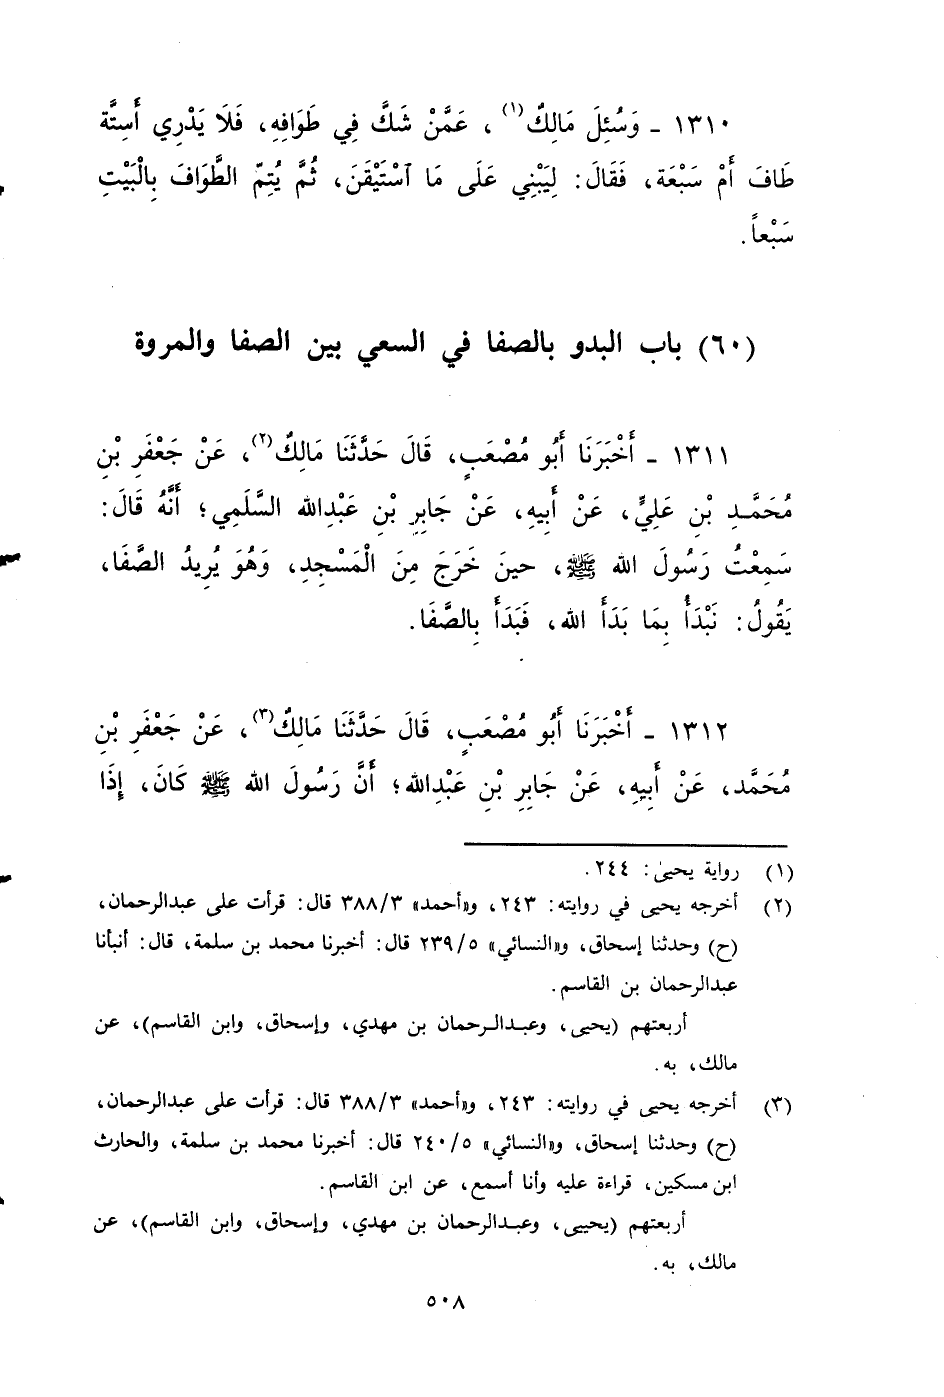 ١٣١٠ ـ وَسُئِلَ مَالِكٌ(١) ، عَمَّنْ شَكَّ فِي طَوَافِهِ، فَلَا يَدْرِي أَسِتَّة
طَافَ أَمْ سَبْعَة، فَقَالَ: لِيَبْنِي عَلَى مَا ٱسْتَيْقَنَ، ثُمَّ يُتِمّ الطَّوَافَ بِالْبَيْتِ
سَبْعاً.
(٦٠) باب البدو بالصفا في السعي بين الصفا والمروة
١٣١١ ـ أَخْبَرَنَا أَبُو مُصْعَبٍ، قَالَ حَدَّثَنَا مَالِكٌ(٢)، عَنْ جَعْفَرِ بْنِ
مُحَمَّدِ بْنِ عَلِيٍّ، عَنْ أَبِيهِ، عَنْ جَابِرِ بْنِ عَبْدِالله السَّلَمِي؛ أَنَّهُ قَالَ:
سَمِعْتُ رَسُولَ الله ﷺ، حينَ خَرَجَ مِنَ الْمَسْجِدِ، وَهُوَ يُرِيدُ الصَّفَا،
يَقُولُ: نَبْدَأُ بِمَا بَدَأَ الله، فَبَدَأَ بِالصَّفَا.
١٣١٢ ـ أَخْبَرَنَا أَبُو مُصْعَبٍ، قَالَ حَدَّثَنَا مَالِكٌ(٣)، عَنْ جَعْفَرِ بْنِ
مُحَمَّد، عَنْ أَبِيهِ، عَنْ جَابِرِ بْنِ عَبْدِالله؛ أَنَّ رَسُولَ الله ﷺ كَانَ، إِذَا
(١) رواية يحيىٰ: ٢٤٤.
(٢) أخرجه يحيى في روايته: ٢٤٣، و«أحمد» ٣٨٨/٣ قال: قرأت على عبدالرحمان،
(ح) وحدثنا إسحاق، و«النسائي» ٢٣٩/٥ قال: أخبرنا محمد بن سلمة، قال: أنبأنا
عبدالرحمان بن القاسم.
أربعتهم (يحيى، وعبدالرحمان بن مهدي، وإسحاق، وابن القاسم)، عن
مالك، به.
(٣) أخرجه يحيى في روايته: ٢٤٣، و«أحمد» ٣٨٨/٣ قال: قرأت على عبدالرحمان،
(ح) وحدثنا إسحاق، و«النسائي» ٢٤٠/٥ قال: أخبرنا محمد بن سلمة، والحارث
ابن مسكين، قراءة عليه وأنا أسمع، عن ابن القاسم.
أربعتهم (يحيى، وعبدالرحمان بن مهدي، وإسحاق، وابن القاسم)، عن
مالك، به.
٥٠٨